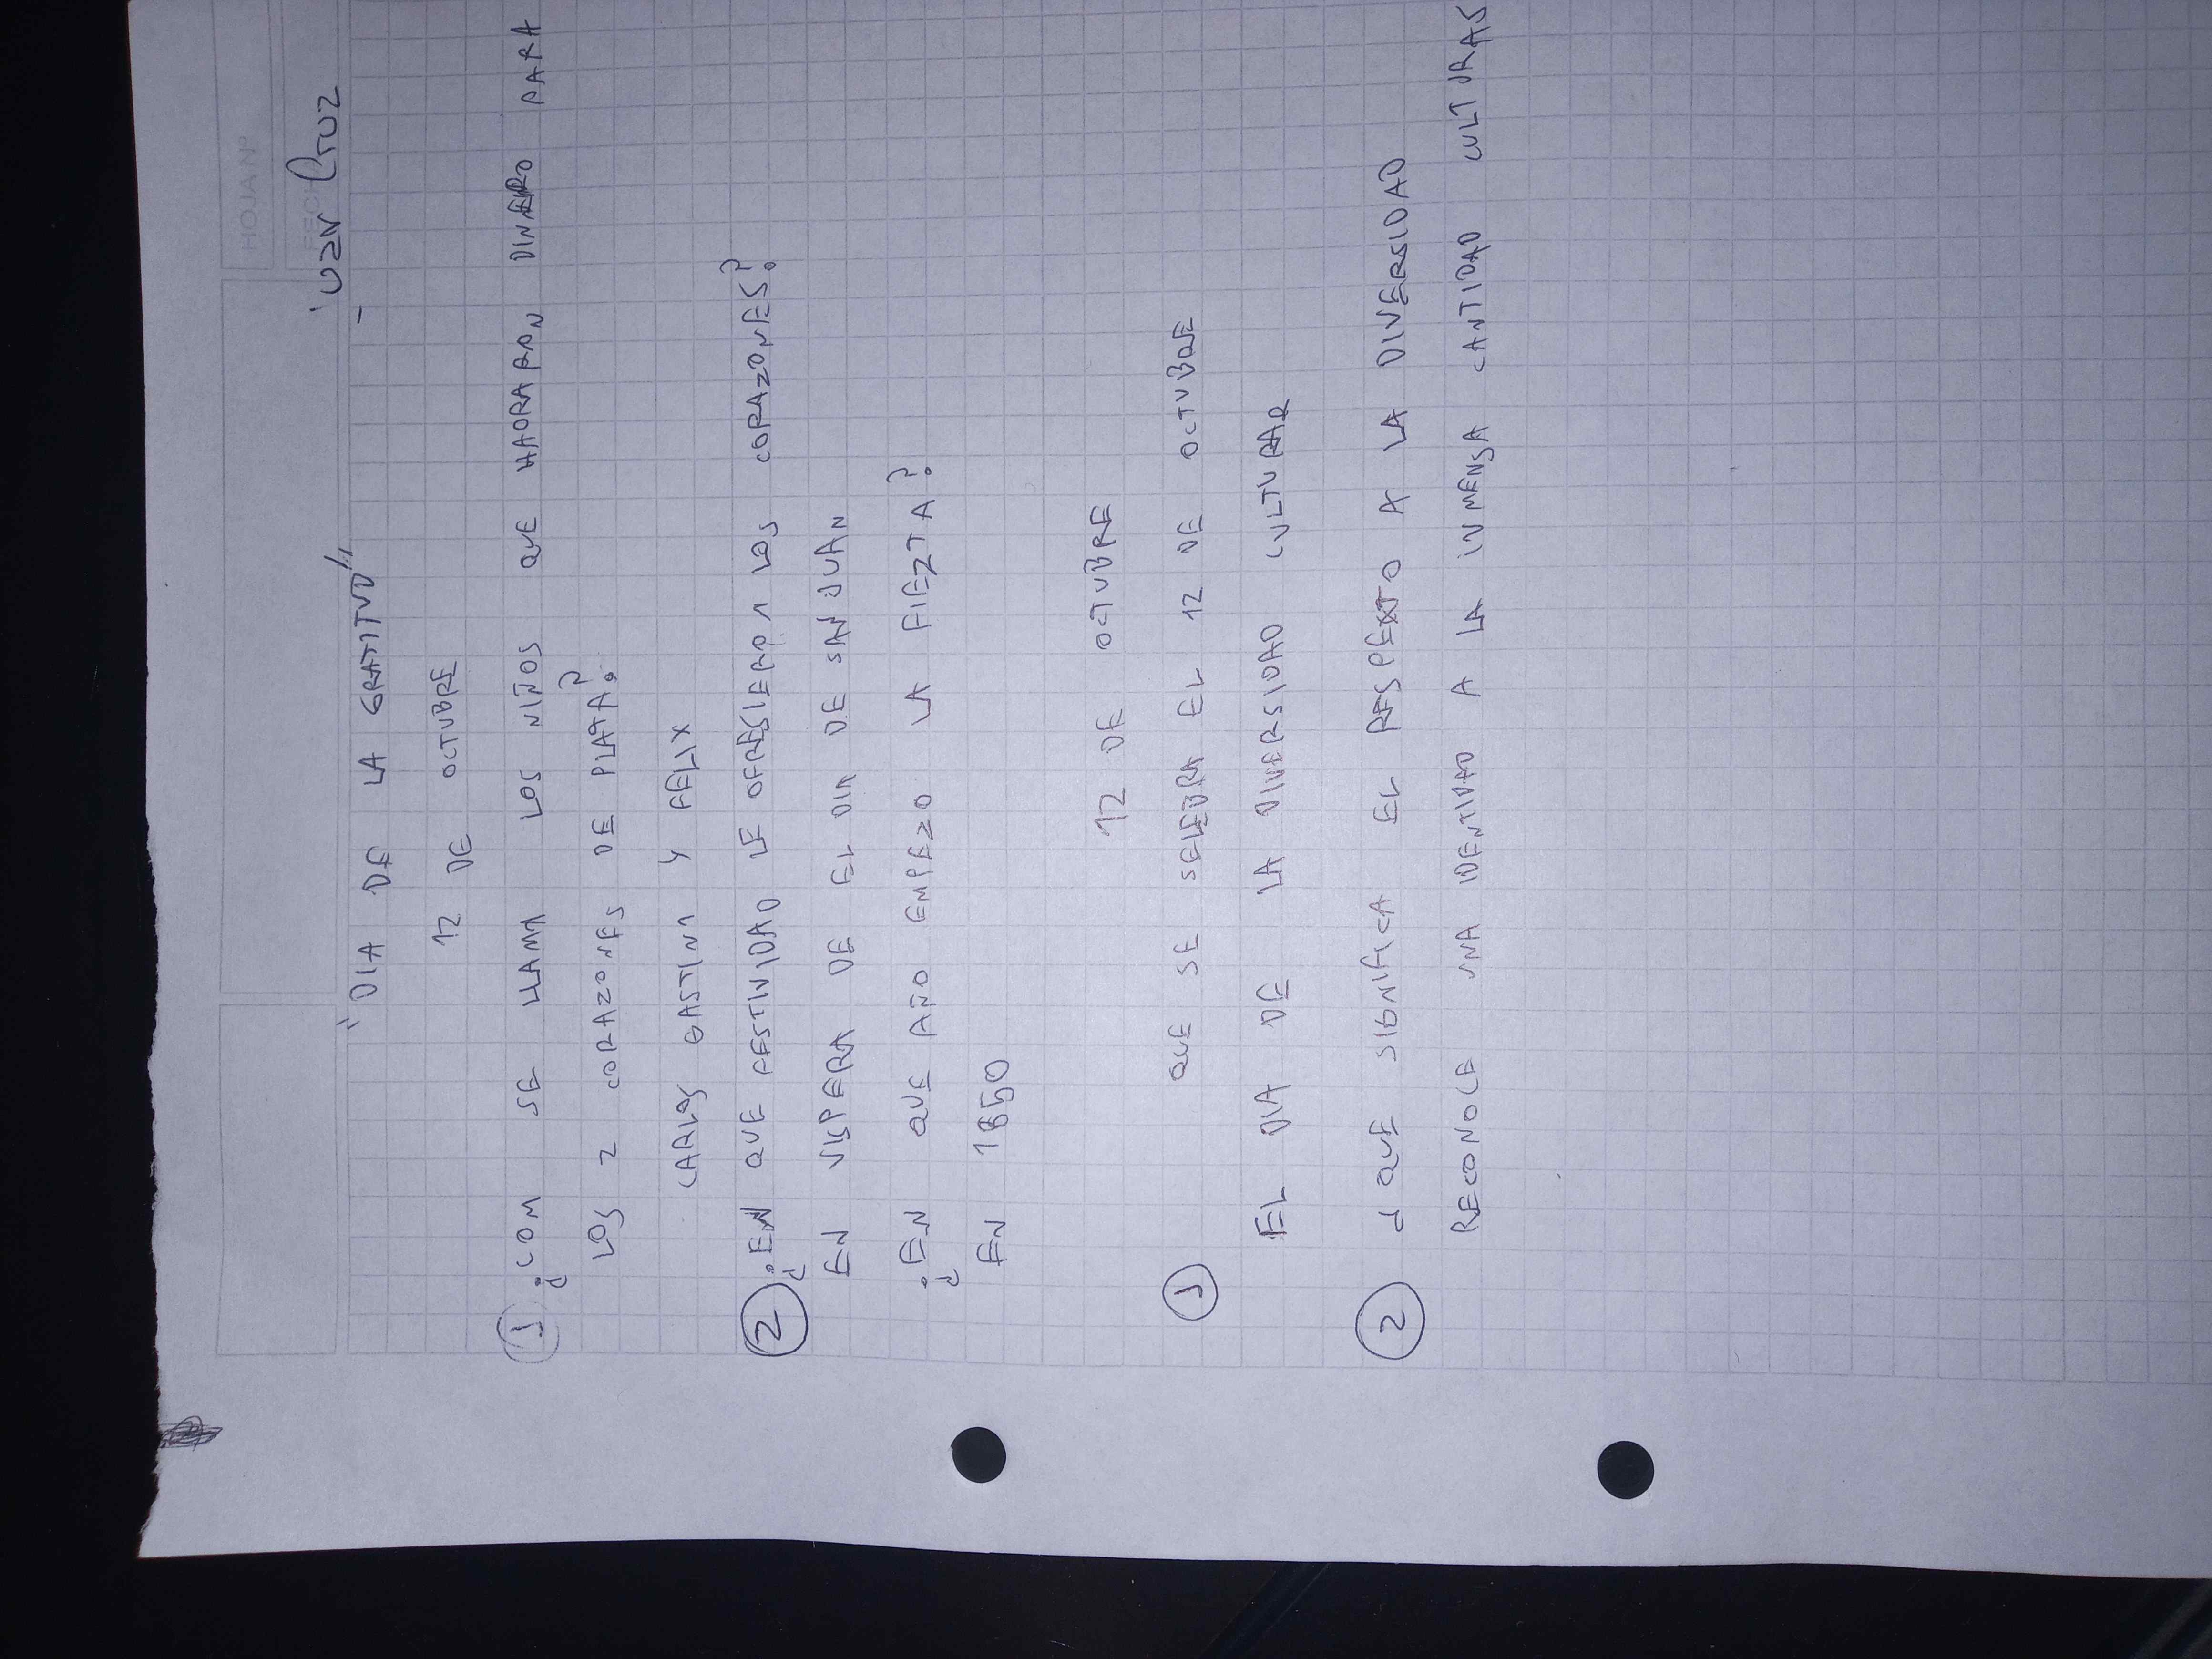 HOJA Nº
FEC
uan Cruz
"DIA DE LA GRATITUD"
12 DE OCTUBRE
1 ¿COM SE LLAMA LOS NIÑOS QUE HAORARON DINERO PARA
LOS 2 CORAZONES DE PLATA?
CARLOS GASTINI Y FELIX
2 ¿EN QUE FESTIVIDAD LE OFRESIERON LOS CORAZONES?
EN VISPERA DE EL DIA DE SAN JUAN
¿EN QUE AÑO EMPEZO LA FIEZTA?
EN 1850
12 DE OCTUBRE
1 QUE SE SELEBRA EL 12 DE OCTUBRE
EL DIA DE LA DIVERSIDAD CULTURAR
2 QUE SIGNIFICA EL RESPEXTO A LA DIVERSIDAD
RECONOCE UNA IDENTIDAD A LA INMENSA CANTIDAD CULTURAS